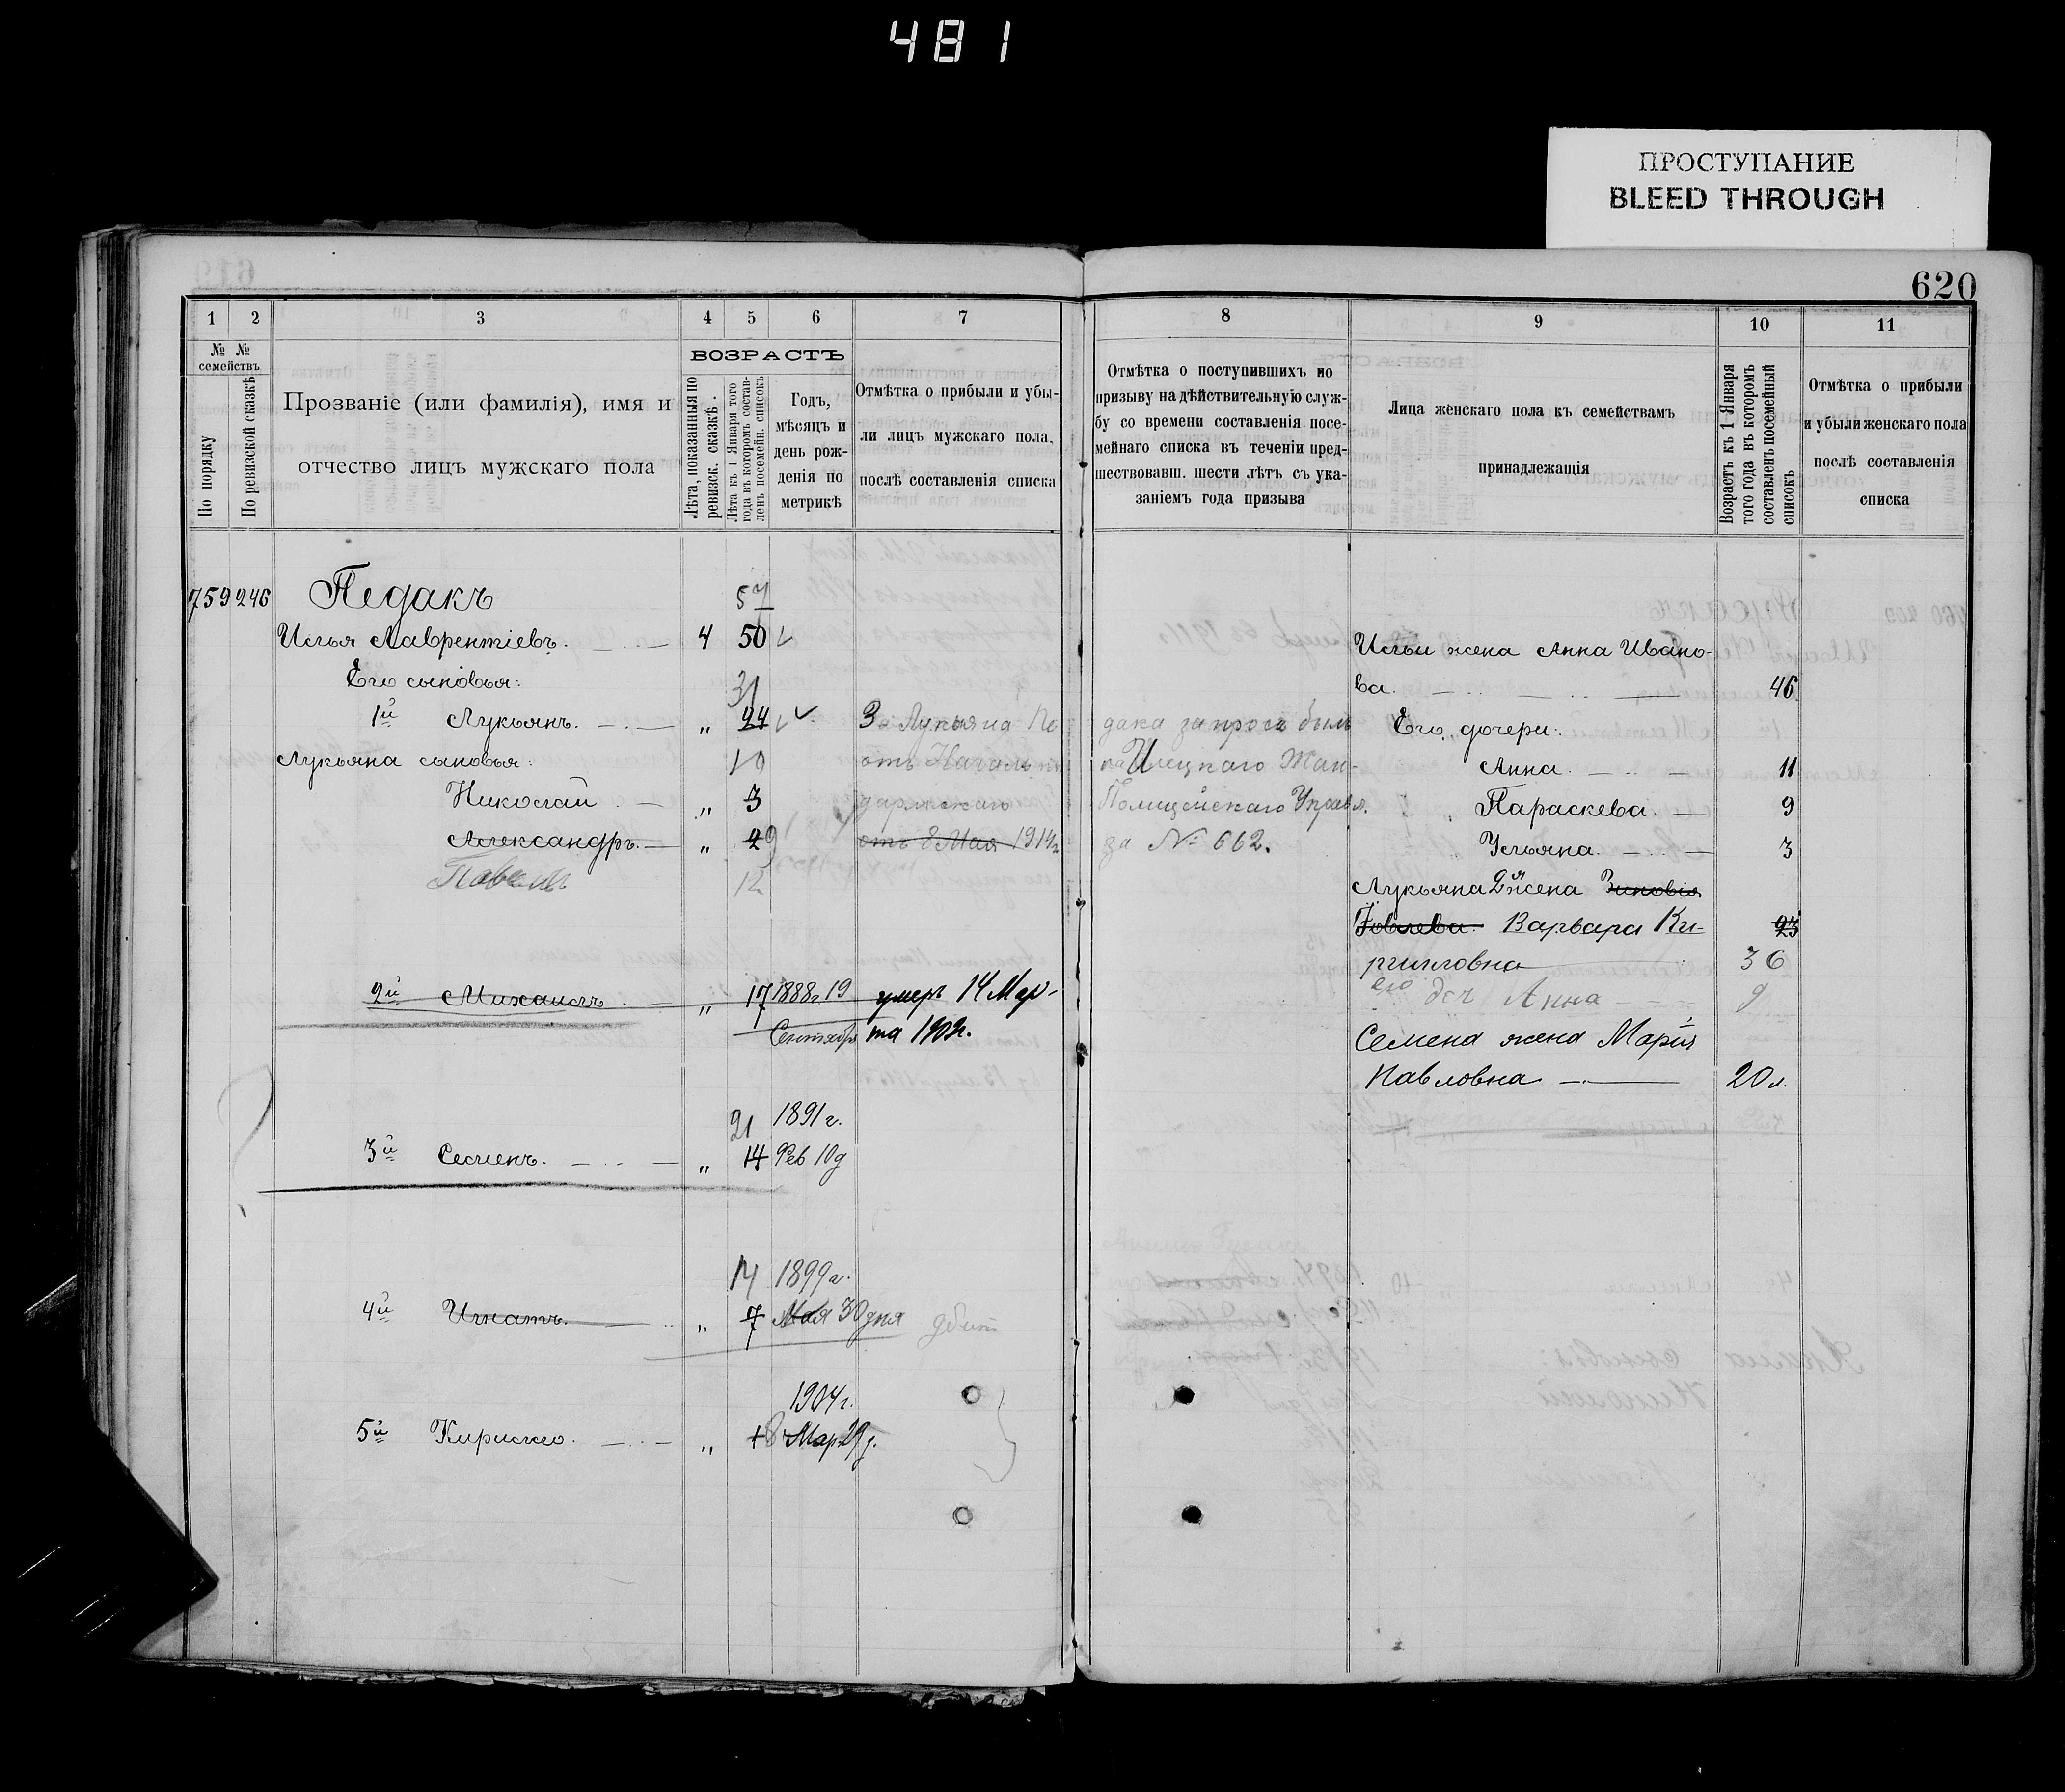 481
ПРОСТУПАНИЕ
BLEED THROUGH
620
1 2 3 4 5 6 7
№ № семействъ
По порядку
По ревизской сказкѣ
Прозваніе (или фамилія), имя и
отчество лицъ мужскаго пола
ВОЗРАСТЪ
Лѣта, показанныя по
ревизск. сказкѣ.
Лѣта къ 1 Января того
года въ которомъ состав-
ленъ посемейн. списокъ
Годъ,
мѣсяцъ и
день рож-
денія по
метрикѣ
Отмѣтка о прибыли и убы-
ли лицъ мужскаго пола,
послѣ составленія списка
759 246 Педакъ 57
Илья Лаврентіевъ. 4 50
Его сыновья: 31
1й Лукьянъ. " 24 З. Лукьяна Пе
Лукьяна сыновья: 10 отъ Началь
Николай " 3
Александръ. " 2 9 отъ 8 Мая 1914г
Павелъ 12
2й Михаилъ. " 17 1888г 19 умеръ 14 Мар-
Сентября та 1909г.
21 1891г.
3й Семенъ. " 14 Фев 10д
14 1899г.
4й Игнатъ. " 7 Мая 30 дня
1904г.
5й Кирилло. " 1 8 Мар. 29д.
8 9 10 11
Отмѣтка о поступившихъ по
призыву на дѣйствительную служ-
бу со времени составленія посе-
мейнаго списка въ теченіи пред-
шествовавш. шести лѣтъ съ ука-
заніемъ года призыва
Лица женскаго пола къ семействамъ
принадлежащія
Возрастъ къ 1 Января
того года въ которомъ
составленъ посемейный
списокъ
Отмѣтка о прибыли
и убыли женскаго пола
послѣ составленія
списка
Ильи жена Анна Ивано-
ва. 46
дака запросъ былъ Его дочери:
Илецкаго Жан- Анна. 11
Полицейскаго Управл. Параскева. 9
за № 662. Ульяна. 3
Лукьяна 2я жена Зиновія
Іовлева. Варвара Ки- 23
рилловна 36
его доч Анна 9
Семена жена Марія
Павловна 20 л.